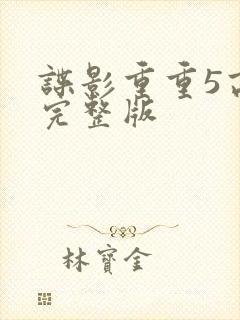 諜影重重5
完整版
林寶金